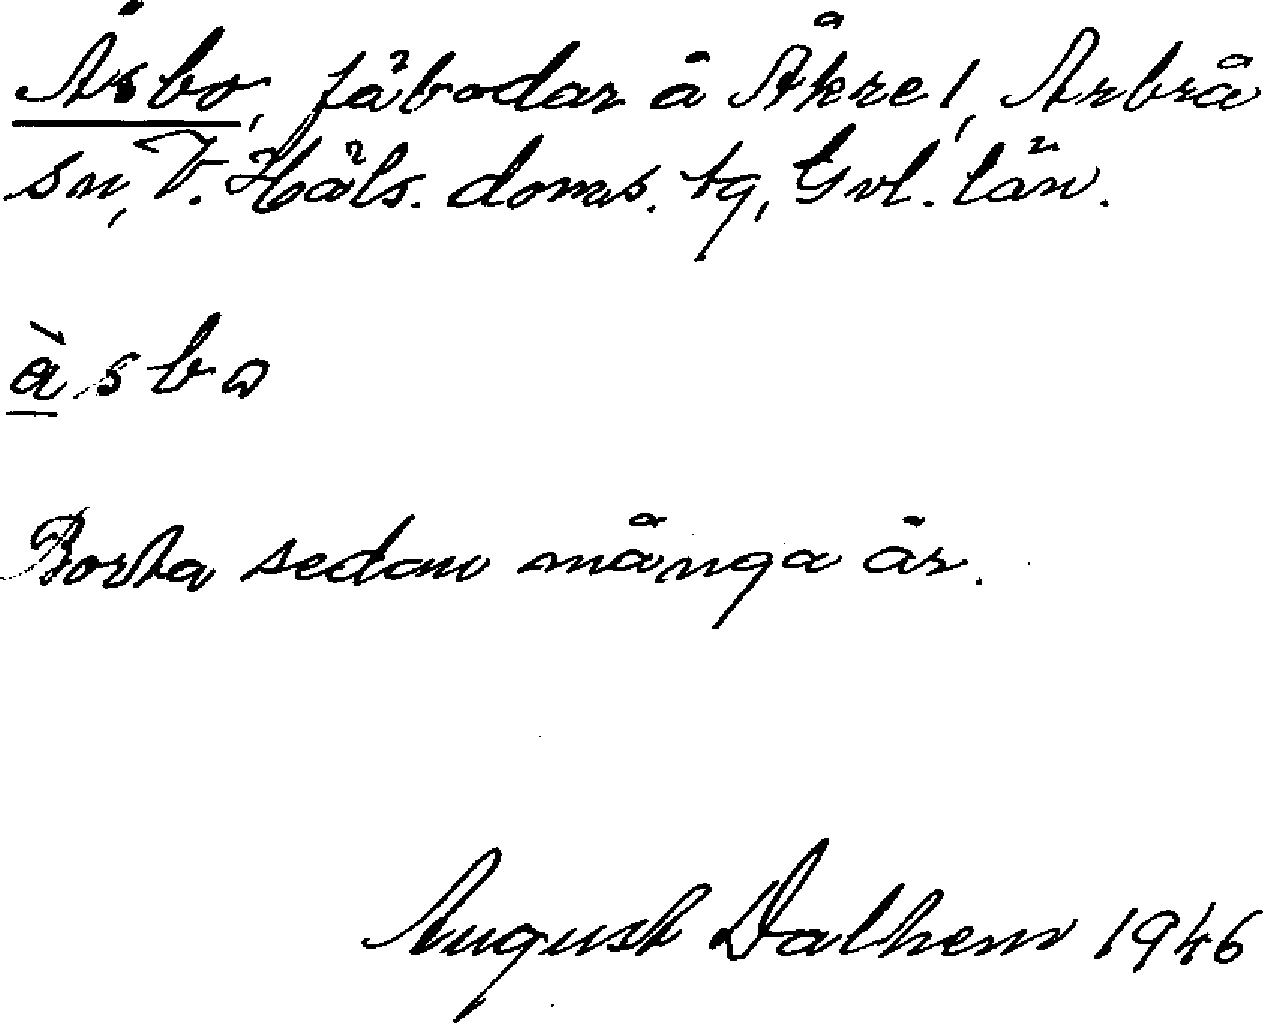 Åsbo, fäbodar å Åkre 1, Arbrå
sn, V. Häls. doms. tg, Gvl. län.
à̱sbo
Borta sedan många år.
August Dalhem 1946